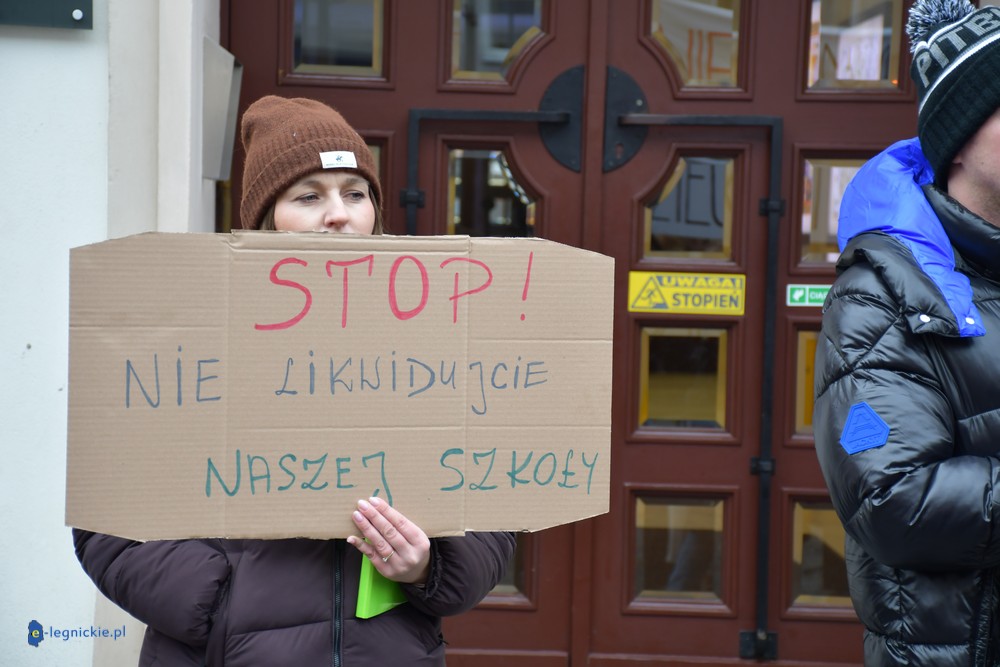 PITB
STOP!
NIE LIKWIDUJCIE
NASZEJ SZKOŁY
UWAGA!
STOPIEŃ
CIĄG
e-legnickie.pl